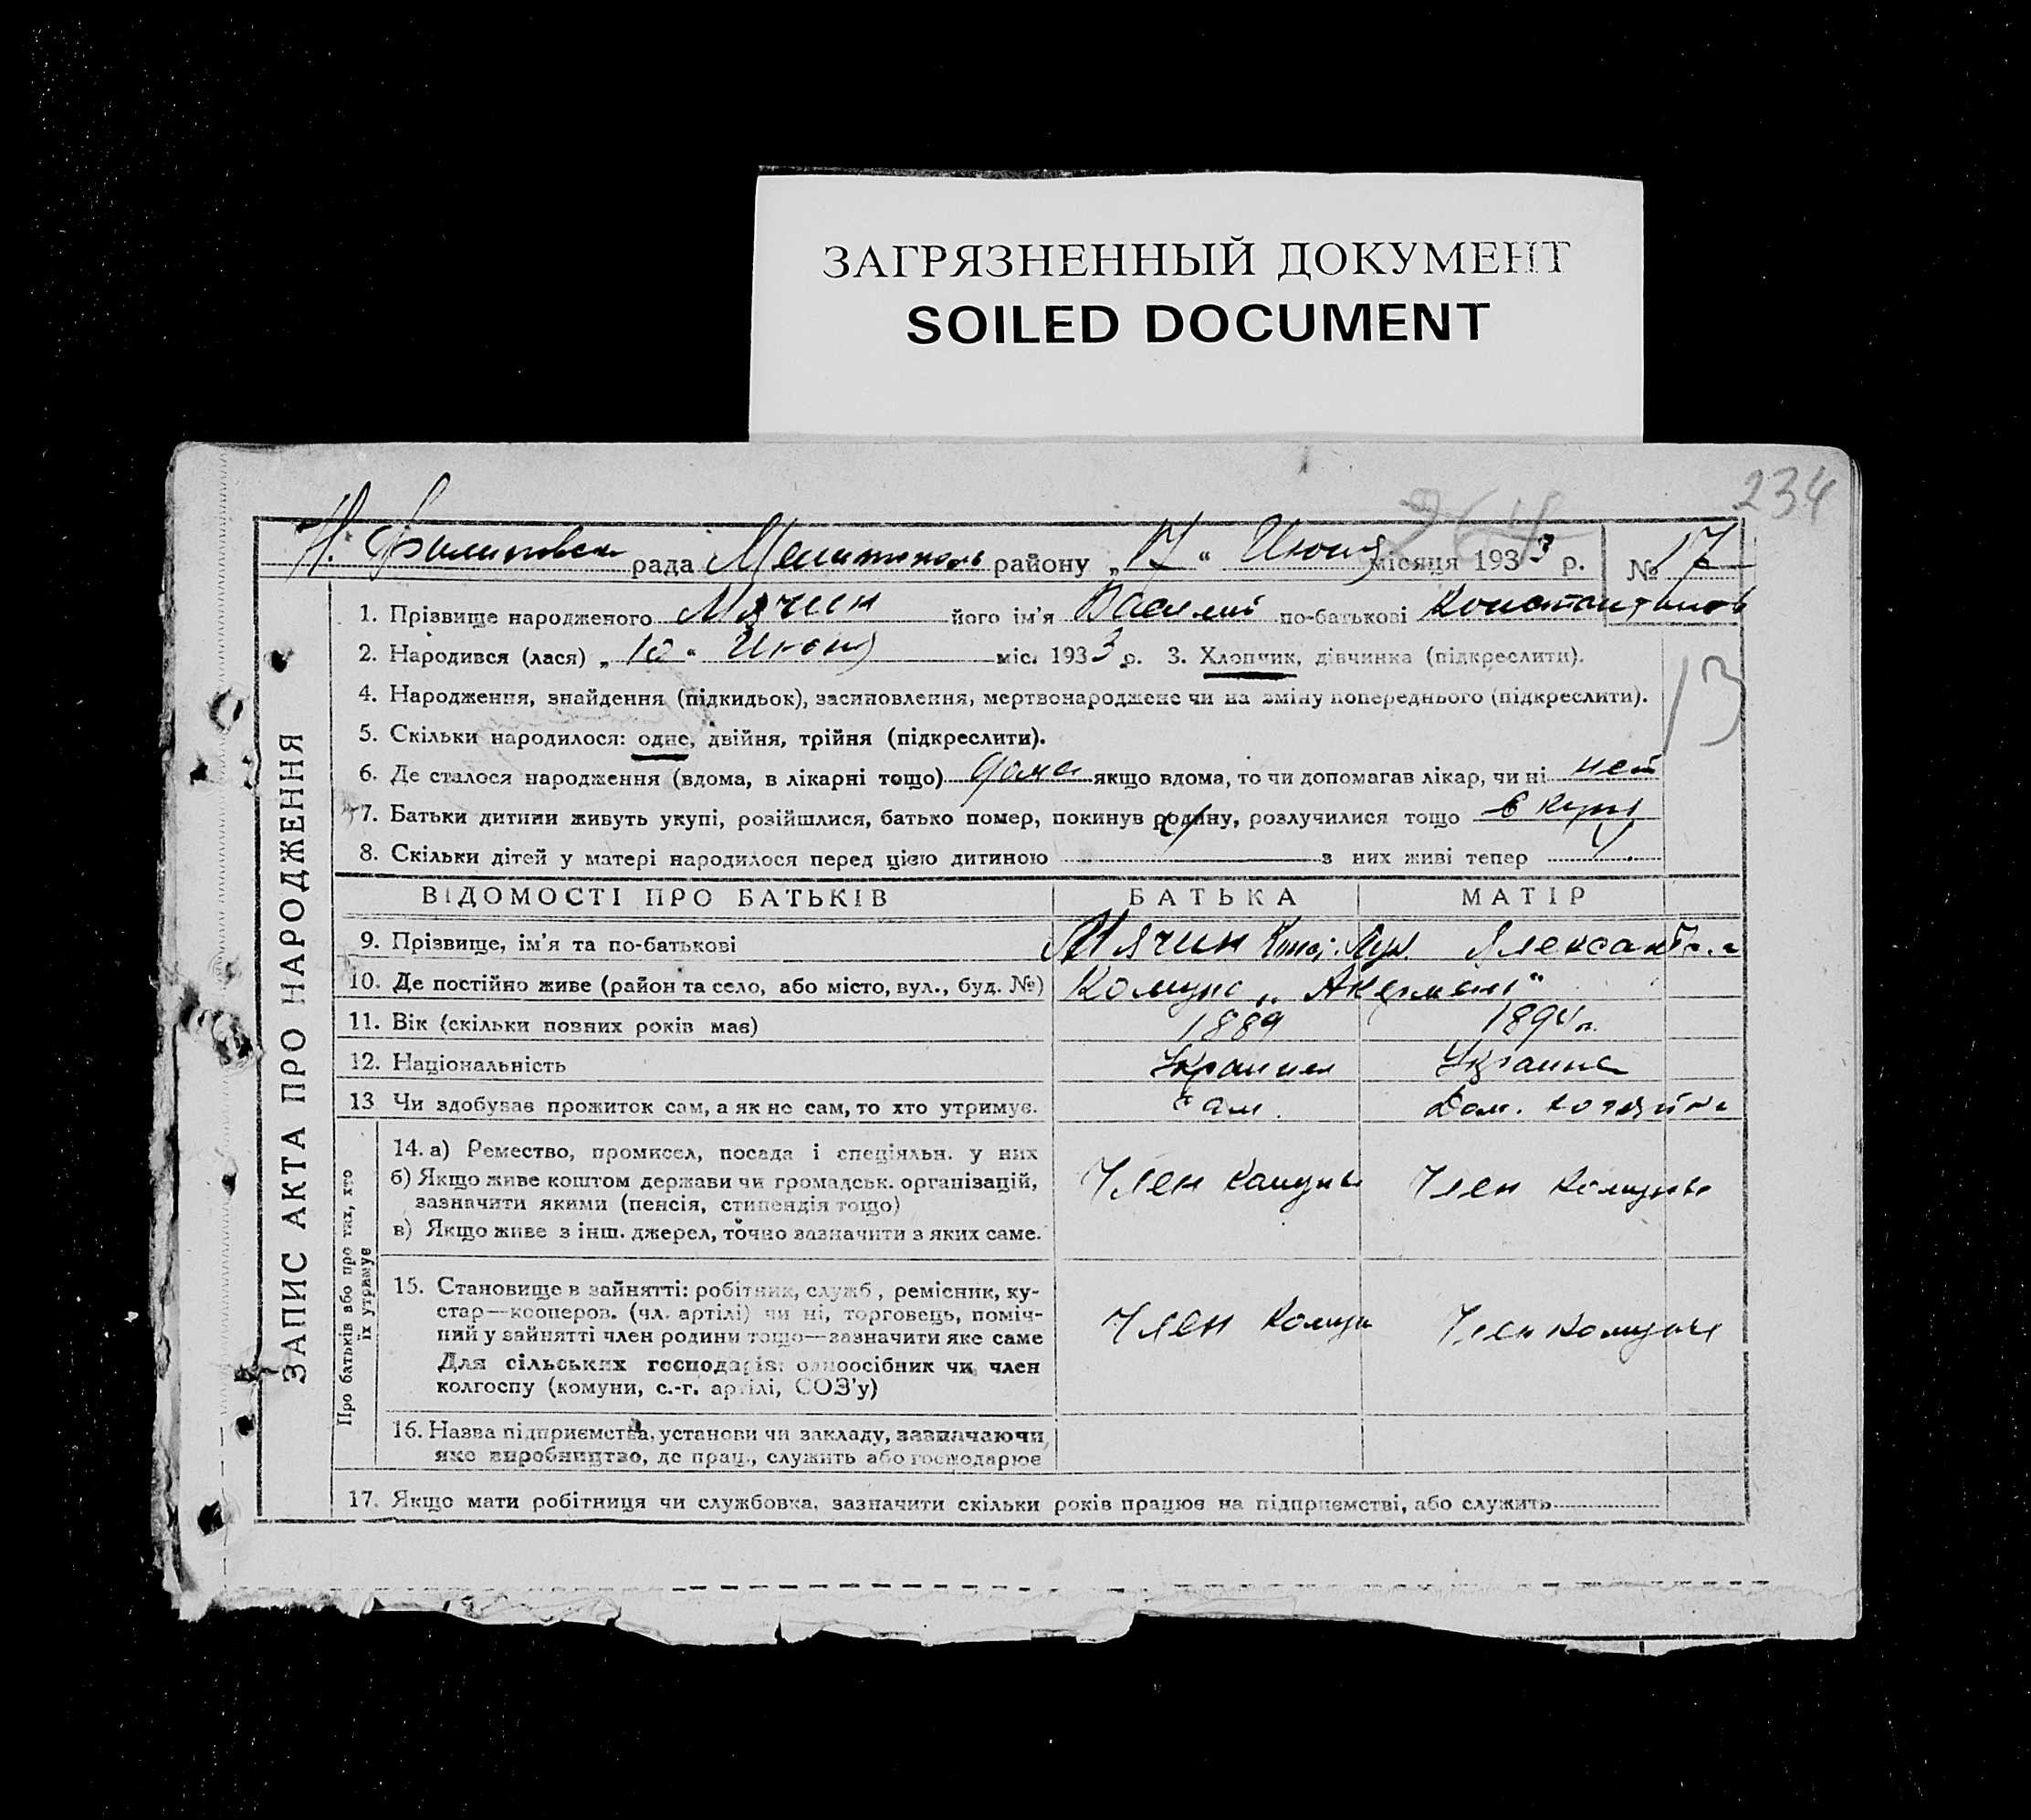 ЗАГРЯЗНЕННЫЙ ДОКУМЕНТ
SOILED DOCUMENT
234
264
Н. Филиповск рада Мелитополь району „17“ Июня місяця 1933 р. № 17
1. Прізвище народженого Мячин його ім'я Василий по-батькові Константинов
2. Народився (лася) „10“ Июня міс. 1933 р. 3. Хлопчик, дівчинка (підкреслити).
13
4. Народження, знайдення (підкидьок), засиновлення, мертвонароджене чи на зміну попереднього (підкреслити).
5. Скільки народилося: одне, двійня, трійня (підкреслити).
6. Де сталося народження (вдома, в лікарні тощо) дома якщо вдома, то чи допомагав лікар, чи ні нет
7. Батьки дитини живуть укупі, розійшлися, батько помер, покинув родину, розлучилися тощо
8. Скільки дітей у матері народилося перед цією дитиною з них живі тепер
ЗАПИС АКТА ПРО НАРОДЖЕННЯ
ВІДОМОСТІ ПРО БАТЬКІВ БАТЬКА МАТІР
9. Прізвище, ім'я та по-батькові Мячин
10. Де постійно живе (район та село, або місто, вул., буд. №) Комуна „Акермень“
11. Вік (скільки повних років має) 1889 1894 г.
12. Національність Украинец Украинка
13 Чи здобував прожиток сам, а як не сам, то хто утримує. Сам. Дом. хозяйка
Про батьків або про тих, хто їх утримує
14. а) Ремество, промисел, посада і спеціяльн. у них
б) Якщо живе коштом держави чи громадськ. організацій, Член Комуны Член Комуны
зазначити якими (пенсія, стипендія тощо)
в) Якщо живе з інш. джерел, точно зазначити з яких саме.
15. Становище в зайнятті: робітник, служб., ремісник, ку-
стар—кооперов. (чл. артілі) чи ні, торговець, поміч- Член Комун Член Комуны
ний у зайнятті член родини тощо—зазначити яке саме
Для сільських господарів: одноосібник чи член
колгоспу (комуни, с.-г. артілі, СОЗ'у)
16. Назва підприємства, установи чи закладу, зазначаючи
яке виробництво, де прац., служить або господарює
17. Якщо мати робітниця чи службовка, зазначити скільки років працює на підприємстві, або служить